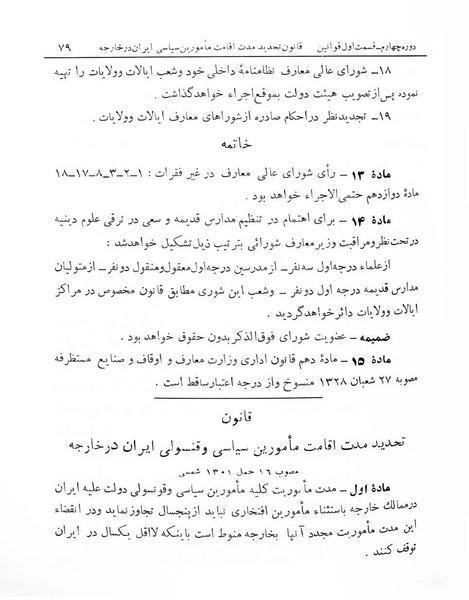 دوره چهارم ـ قسمت اول قوانین قانون تحدید مدت اقامت مأمورین سیاسی ایران در خارجه ۷۹
۱۸ـ شورای عالی معارف نظامنامهٔ داخلی خود وشعب ایالات وولایات را تهیه
نموده پس از تصویب هیئت دولت بموقع اجراء خواهد گذاشت .
۱۹ـ تجدید نظر در احکام صادره از شوراهای معارف ایالات وولایات .
خاتمه
مادهٔ ۱۳ ـ رأی شورای عالی معارف در غیر فقرات : ۱ـ۲ـ۳ـ۸ـ۱۷ـ۱۸
مادهٔ دوازدهم حتمی‌الاجراء خواهد بود .
مادهٔ ۱۴ ـ برای اهتمام در تنظیم مدارس قدیمه و سعی در ترقی علوم دینیه
در تحت نظر ومراقبت وزیر معارف شورائی بترتیب ذیل تشکیل خواهد شد :
از علماء درجه اول سه نفر ـ از مدرسین درجه اول معقول ومنقول دو نفر ـ از متولیان
مدارس قدیمه درجه اول دو نفر ـ وشعب این شوری مطابق قانون مخصوص در مراکز
ایالات وولایات دائر خواهد گردید .
ضمیمه ـ عضویت شورای فوق الذکر بدون حقوق خواهد بود .
مادهٔ ۱۵ ـ مادهٔ دهم قانون اداری وزارت معارف و اوقاف و صنایع مستظرفه
مصوبه ۲۷ شعبان ۱۳۲۸ منسوخ واز درجه اعتبار ساقط است .
قانون
تحدید مدت اقامت مأمورین سیاسی وقنسولی ایران در خارجه
مصوب ۱۶ حمل ۱۳۰۱ شمسی
مادهٔ اول ـ مدت مأموریت کلیه مأمورین سیاسی وقونسولی دولت علیه ایران
در ممالک خارجه باستثناء مأمورین افتخاری نباید از پنجسال تجاوز نماید ودر انقضاء
این مدت مأموریت مجدد آنها بخارجه منوط است باینکه لااقل یکسال در ایران
توقف کنند .